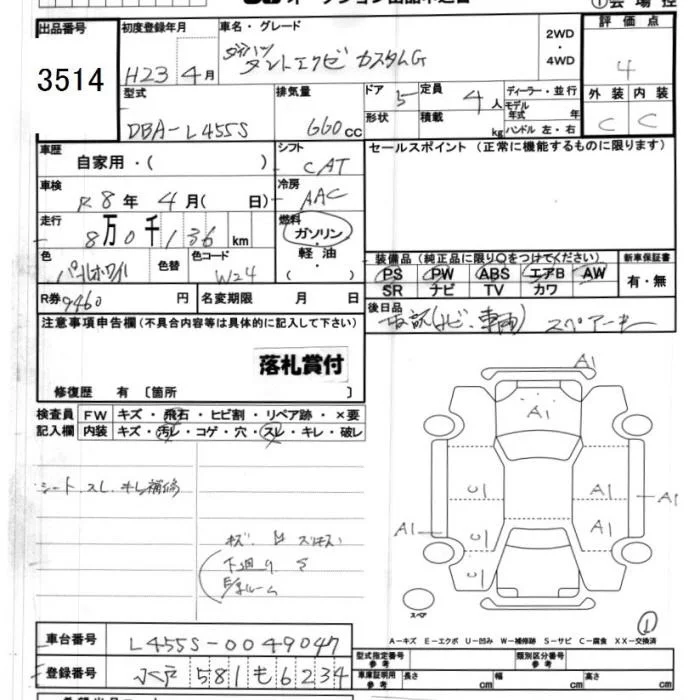 出品番号 初度登録年月 車名・グレード 2WD ・ 4WD 評価点
3514 H23年4月 ダイハツ タントエグゼ カスタムG 4
型式 排気量 ドア 定員 ディーラー・並行 外装 内装
DBA-L455S 660cc 5 4人 モデル年式 年 C C
形状 積載 kg ハンドル 左・右
車歴 自家用・( ) シフト CAT セールスポイント (正常に機能するものに限ります)
車検 R8年4月( 日) 冷房 AAC
走行 8万0千136km 燃料 ガソリン・軽油・( )
色 パールホワイト 色替 色コード W24
装備品 (純正品に限り○をつけてください) 新車保証書
PS PW ABS エアB AW 有・無
SR ナビ TV カワ
R券 9460円 名変期限 月 日
後日品 取説(ナビ、車両) スペアーキー
注意事項申告欄 (不具合内容等は具体的に記入して下さい)
落札賞付
修復歴 有 〔箇所 〕
検査員 FW キズ・飛石・ヒビ割・リペア跡・×要
記入欄 内装 キズ・汚レ・コゲ・穴・スレ・キレ・破レ
シート スレ キレ補修
キズ 凹 スリキズ
下廻り サ
A1
A1
U1 A1
A1 U1 A1 A1
U1
スペア
①
A-キズ E-エクボ U-凹み W-補修跡 S-サビ C-腐食 XX-交換済
車台番号 L455S-0049047 型式指定番号 参考 類別区分番号 参考
登録番号 水戸 581 も 6234 車庫証明用 参考 長さ cm 幅 cm 高さ cm